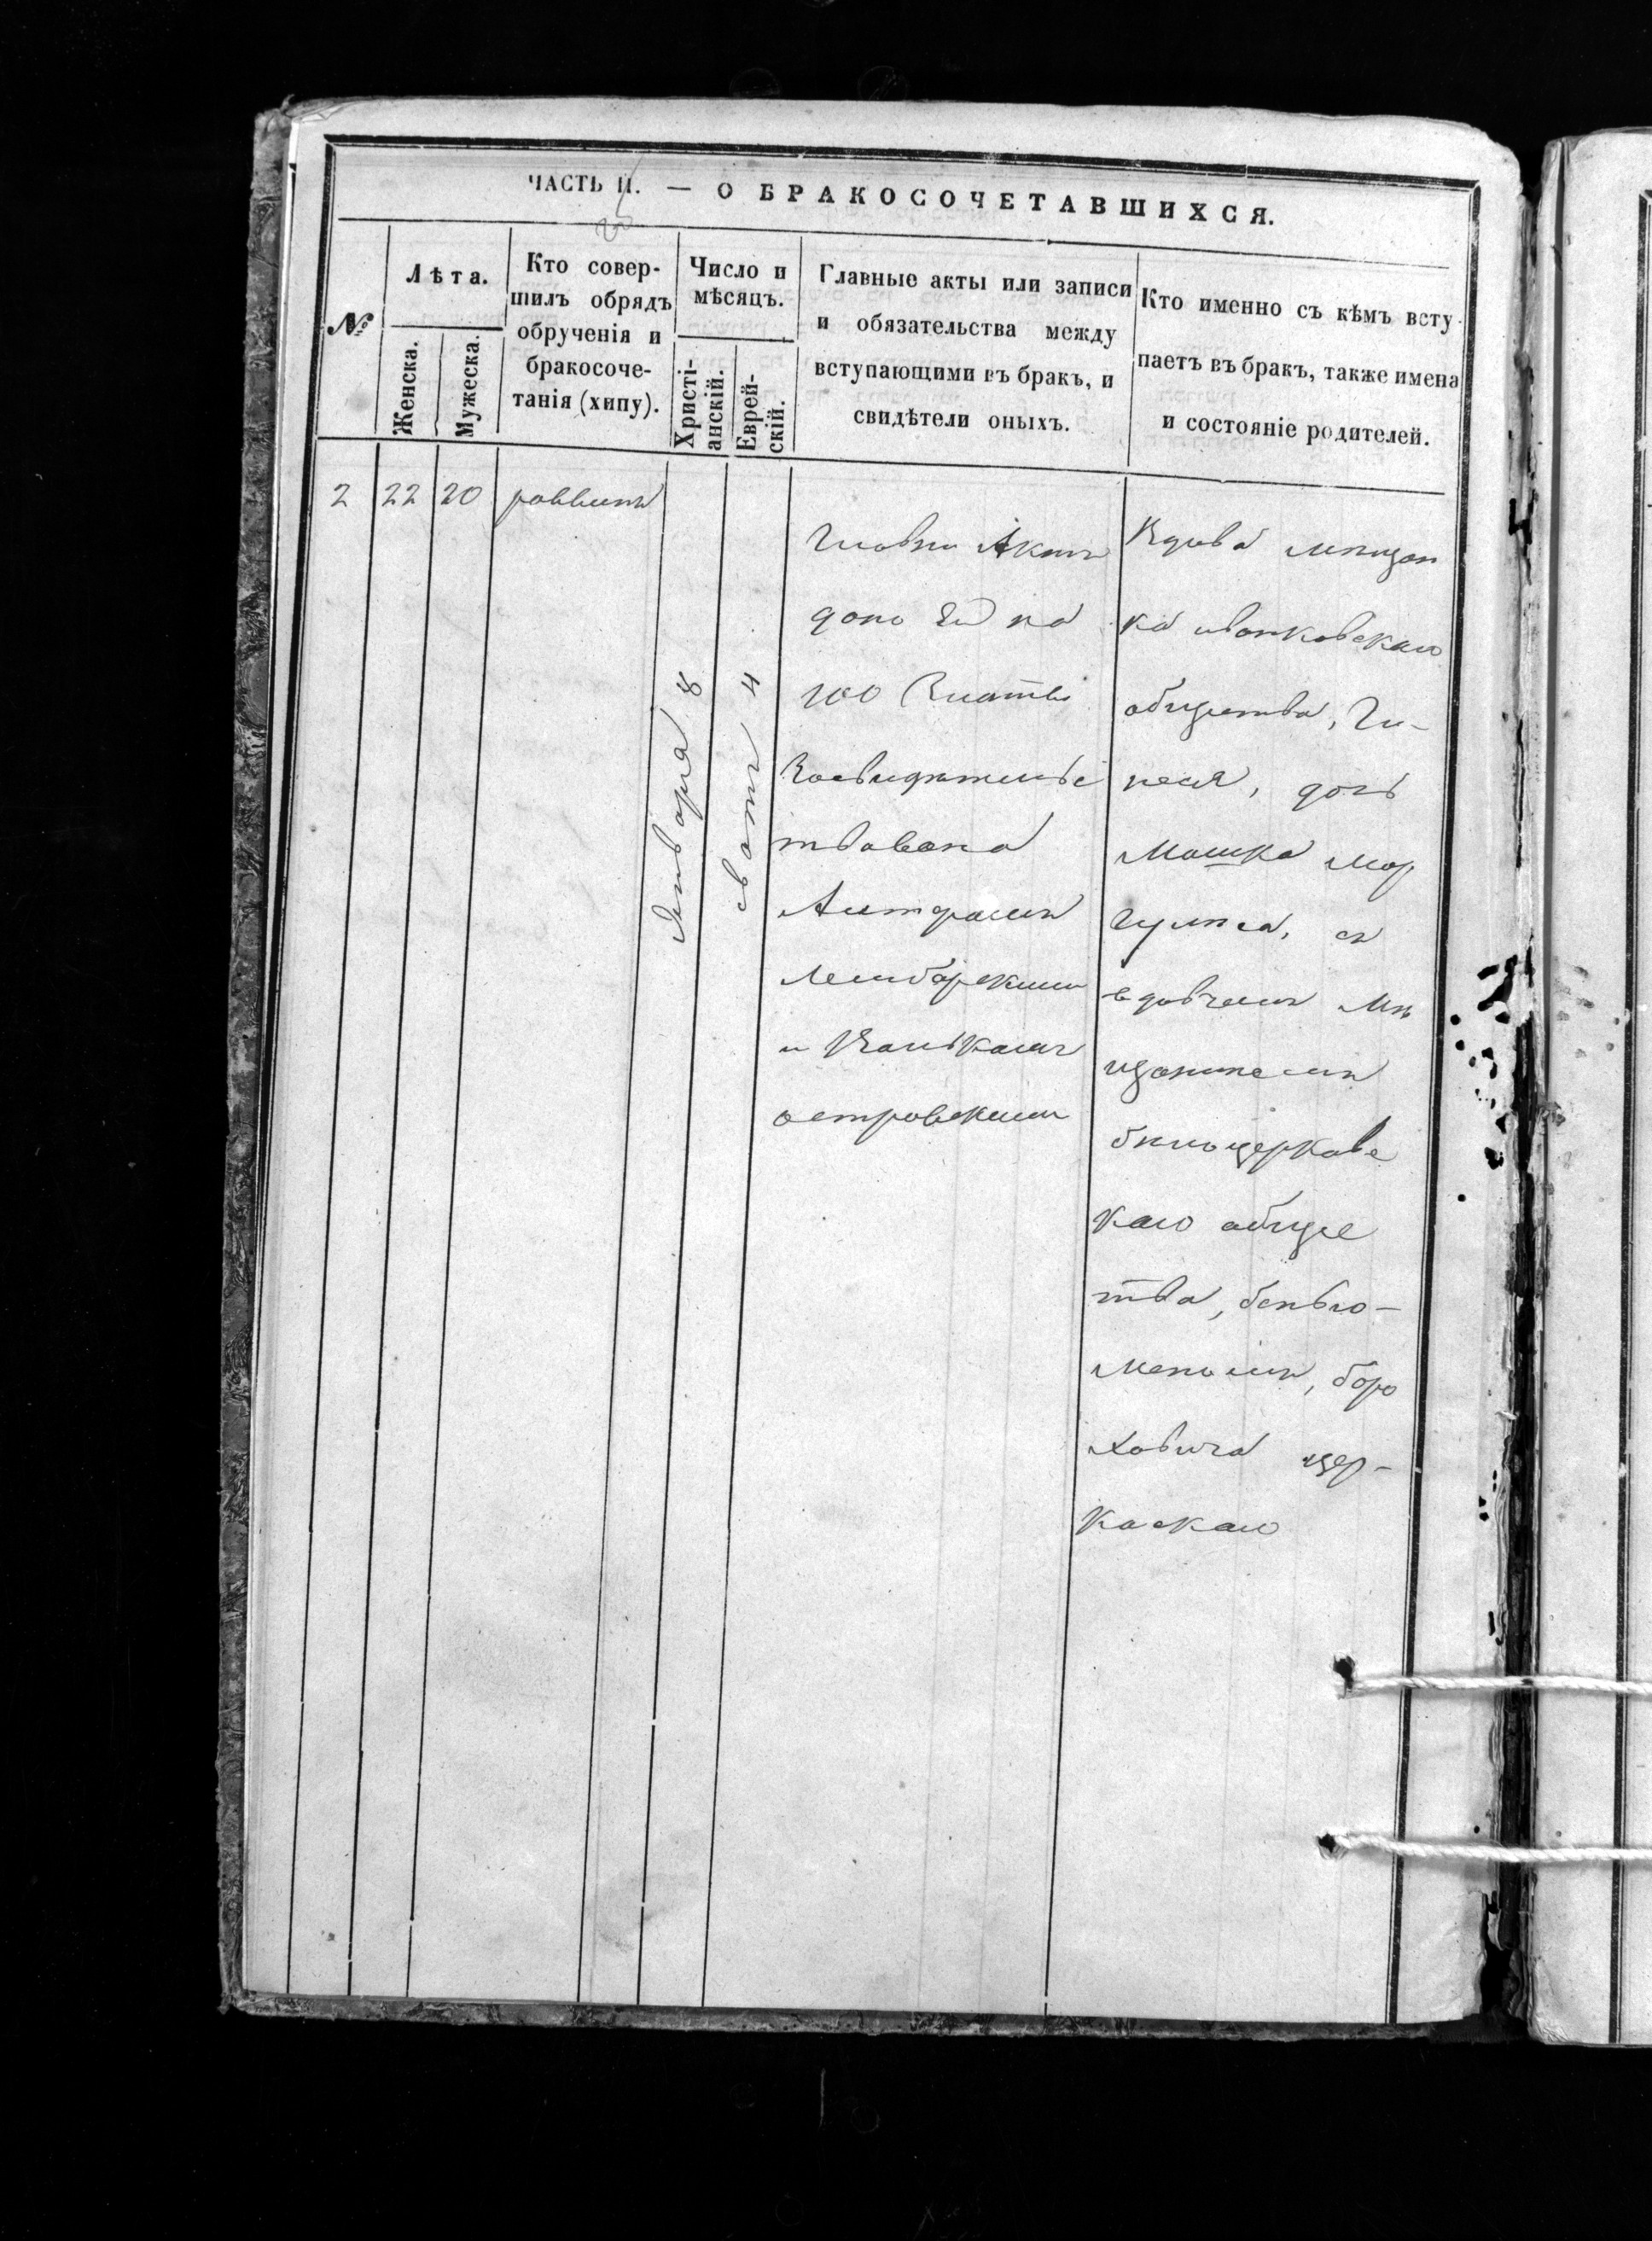 ЧАСТЬ II. — О БРАКОСОЧЕТАВШИХСЯ.
№
Лѣта.
Женска.
Мужеска.
Кто совер-
шилъ обрядъ
обрученія и
бракосоче-
танія (хипу).
Число и
мѣсяцъ.
Христі-
анскій.
Еврей-
скій.
Главные акты или записи
и обязательства между
вступающими въ бракъ, и
свидѣтели оныхъ.
Кто именно съ кѣмъ всту-
паетъ въ бракъ, также имена
и состояніе родителей.
2
22
20
раввинъ
Января 8
4
Актъ
данъ на
100
Засвидѣтельс
твована
и
островскимъ
Вдова мещан
ка иванковскаго
общества, Ги-
неся, дочь
Мошка Мор
съ
вдовчемъ мѣ
щаниномъ
бѣлоцерковс
каго обще
тва, беньѣ-
меномъ, боро
ховича чер-
каскаго